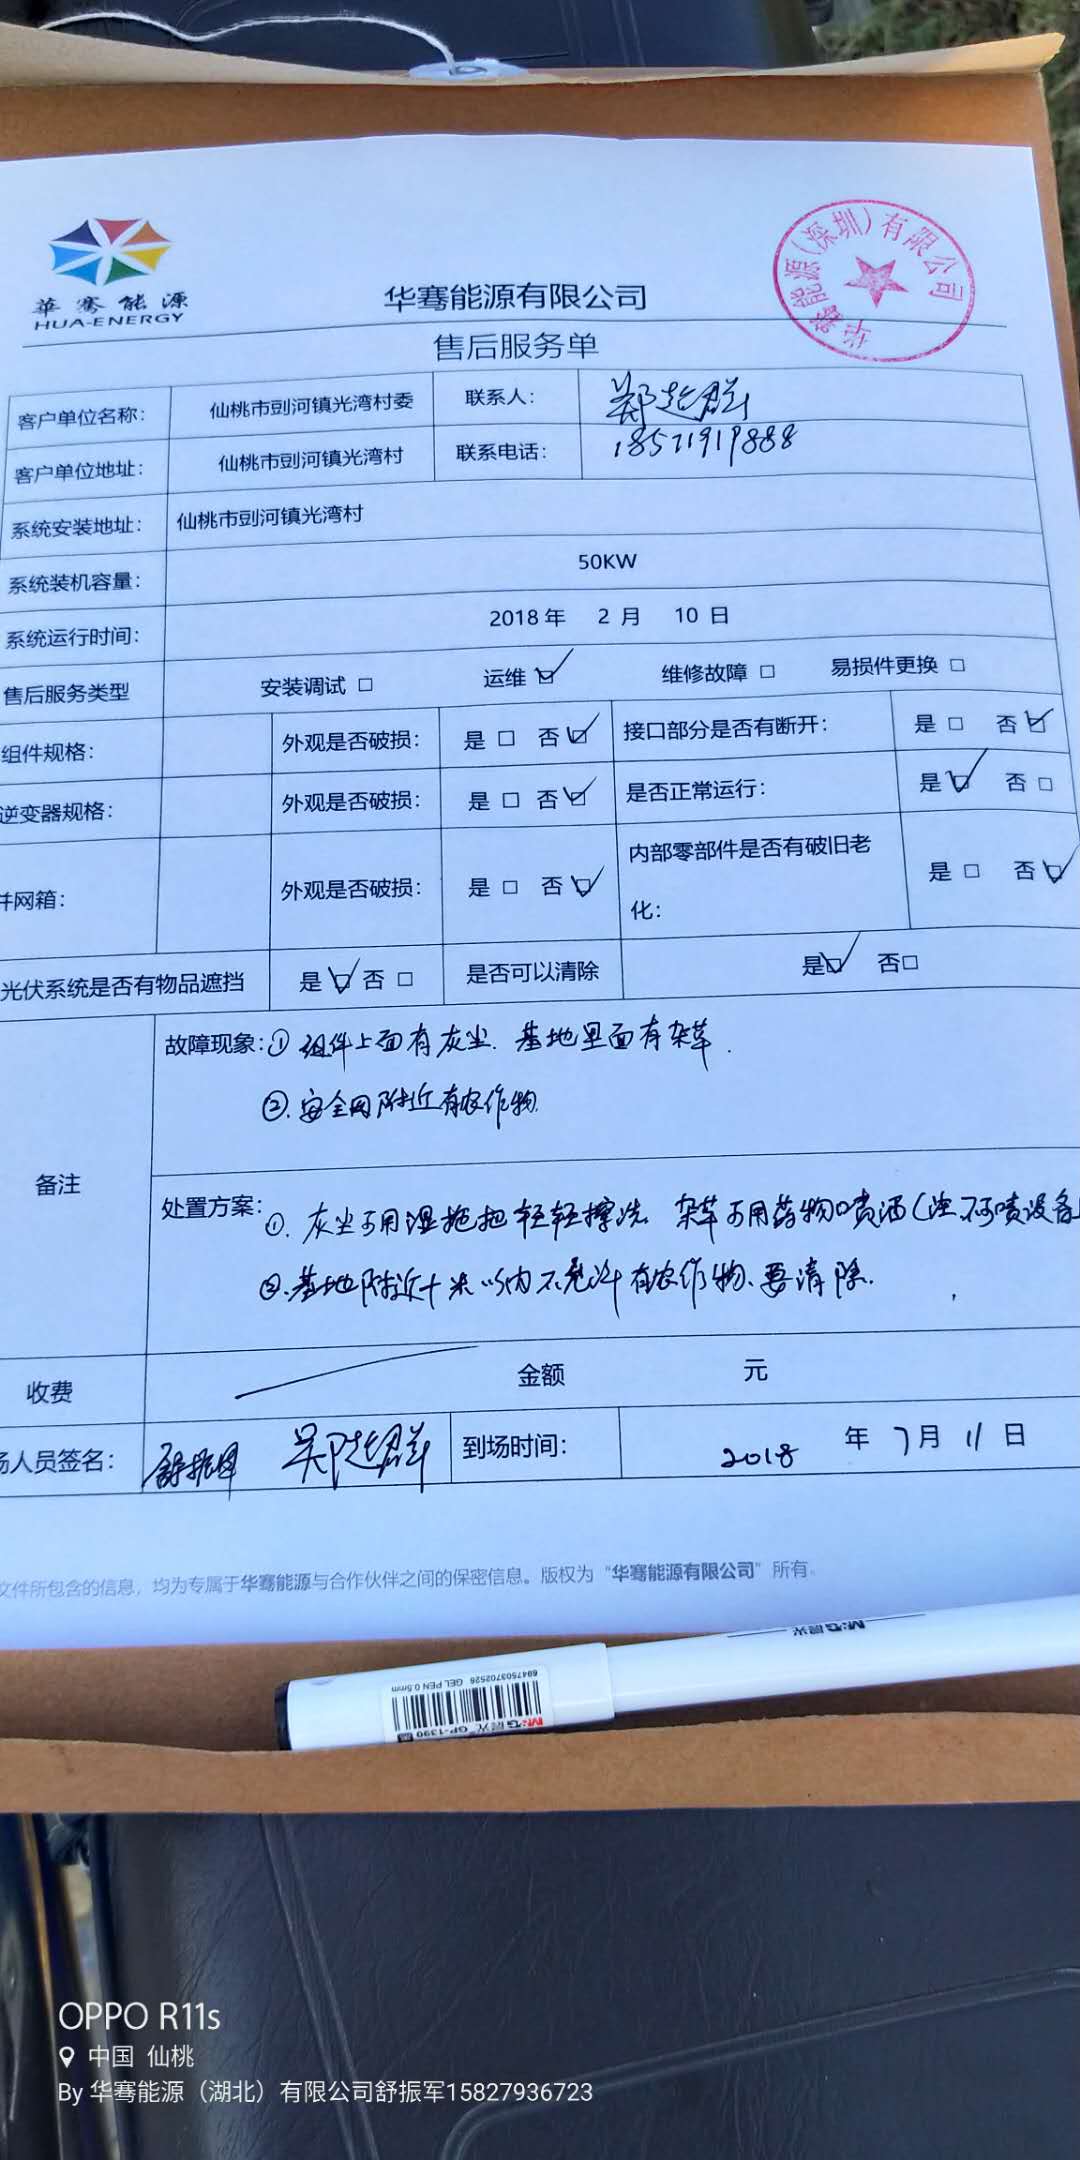 華骞能源
HUA-ENERGY
华骞能源(深圳)有限公司
华骞能源有限公司
售后服务单
客户单位名称: 仙桃市剅河镇光湾村委 联系人: 郑超群
客户单位地址: 仙桃市剅河镇光湾村 联系电话: 18571919888
系统安装地址: 仙桃市剅河镇光湾村
系统装机容量: 50KW
系统运行时间: 2018 年 2 月 10 日
售后服务类型 安装调试 □ 运维 ☑ 维修故障 □ 易损件更换 □
组件规格: 外观是否破损: 是 □ 否 ☑ 接口部分是否有断开: 是 □ 否 ☑
逆变器规格: 外观是否破损: 是 □ 否 ☑ 是否正常运行: 是 ☑ 否 □
并网箱: 外观是否破损: 是 □ 否 ☑ 内部零部件是否有破旧老
化: 是 □ 否 ☑
光伏系统是否有物品遮挡 是 ☑ 否 □ 是否可以清除 是☑ 否□
备注
故障现象:① 组件上面有灰尘. 基地里面有杂草.
②. 安全网附近有农作物.
处置方案:①. 灰尘可用湿拖把轻轻擦洗 杂草可用药物喷洒(注.不可喷设备)
②.基地附近十米以内不允许有农作物、要清除.
收费 金额 元
场人员签名: 舒振军 郑超群 到场时间: 2018 年 7 月 11 日
文件所包含的信息，均为专属于华骞能源与合作伙伴之间的保密信息。版权为“华骞能源有限公司”所有。
M&G晨光
6947503702526 GEL PEN 0.5mm
M&G晨光 GP-1390
OPPO R11s
中国 仙桃
By 华骞能源（湖北）有限公司舒振军15827936723